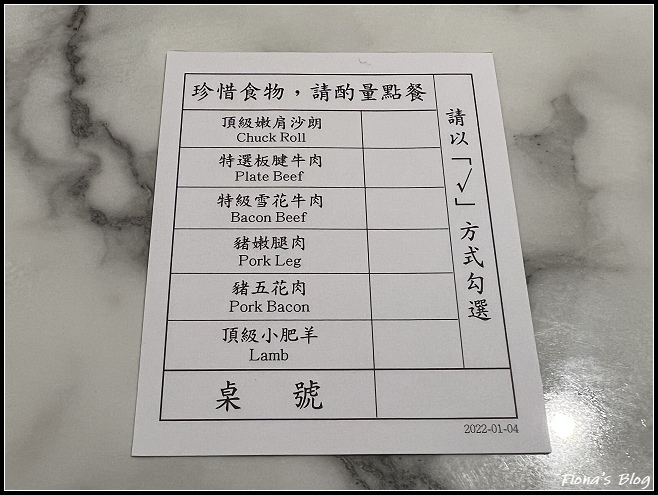 珍惜食物，請酌量點餐
頂級嫩肩沙朗
Chuck Roll
特選板腱牛肉
Plate Beef
特級雪花牛肉
Bacon Beef
豬嫩腿肉
Pork Leg
豬五花肉
Pork Bacon
頂級小肥羊
Lamb
桌 號
請以「✓」方式勾選
2022-01-04
Fiona's Blog